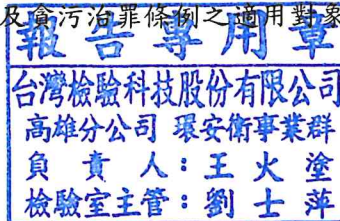 及貪污治罪條例之適用對象
報告專用章
台灣檢驗科技股份有限公司
高雄分公司 環安衛事業群
負責人：王火塗
檢驗室主管：劉士萍